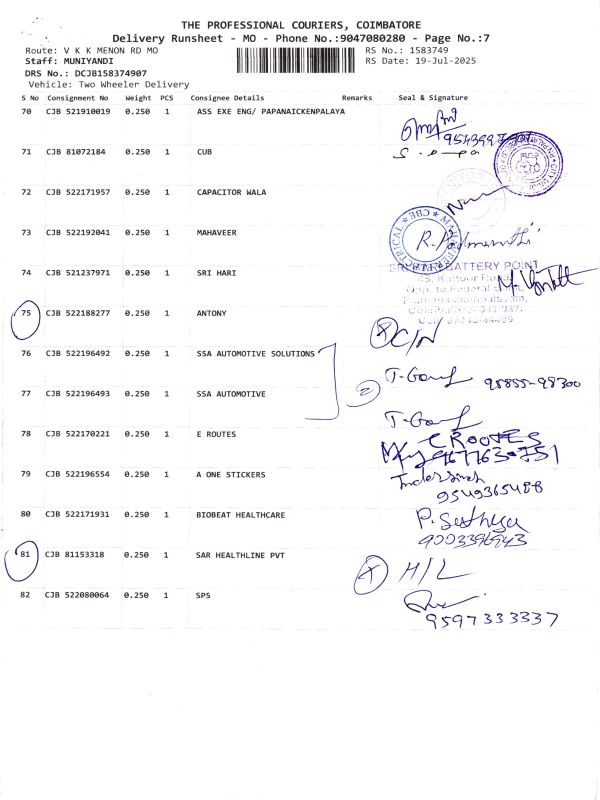 THE PROFESSIONAL COURIERS, COIMBATORE
Delivery Runsheet - MO - Phone No.:9047080280 - Page No.:7
Route: V K K MENON RD MO
RS No.: 1583749
Staff: MUNIYANDI
RS Date: 19-Jul-2025
DRS No.: DCJB158374907
Vehicle: Two Wheeler Delivery
S No Consignment No Weight PCS Consignee Details Remarks Seal & Signature
70 CJB 521910019 0.250 1 ASS EXE ENG/ PAPANAICKENPALAYA
71 CJB 81072184 0.250 1 CUB
72 CJB 522171957 0.250 1 CAPACITOR WALA
73 CJB 522192041 0.250 1 MAHAVEER
R. Padmavathi
74 CJB 521237971 0.250 1 SRI HARI
BATTERY POINT
75 CJB 522188277 0.250 1 ANTONY
C/N
76 CJB 522196492 0.250 1 SSA AUTOMOTIVE SOLUTIONS
2
98855-98300
77 CJB 522196493 0.250 1 SSA AUTOMOTIVE
78 CJB 522170221 0.250 1 E ROUTES
79 CJB 522196554 0.250 1 A ONE STICKERS
9549365488
80 CJB 522171931 0.250 1 BIOBEAT HEALTHCARE
P. Sathya
9003396943
81 CJB 81153318 0.250 1 SAR HEALTHLINE PVT
H/L
82 CJB 522080064 0.250 1 SPS
9597333337